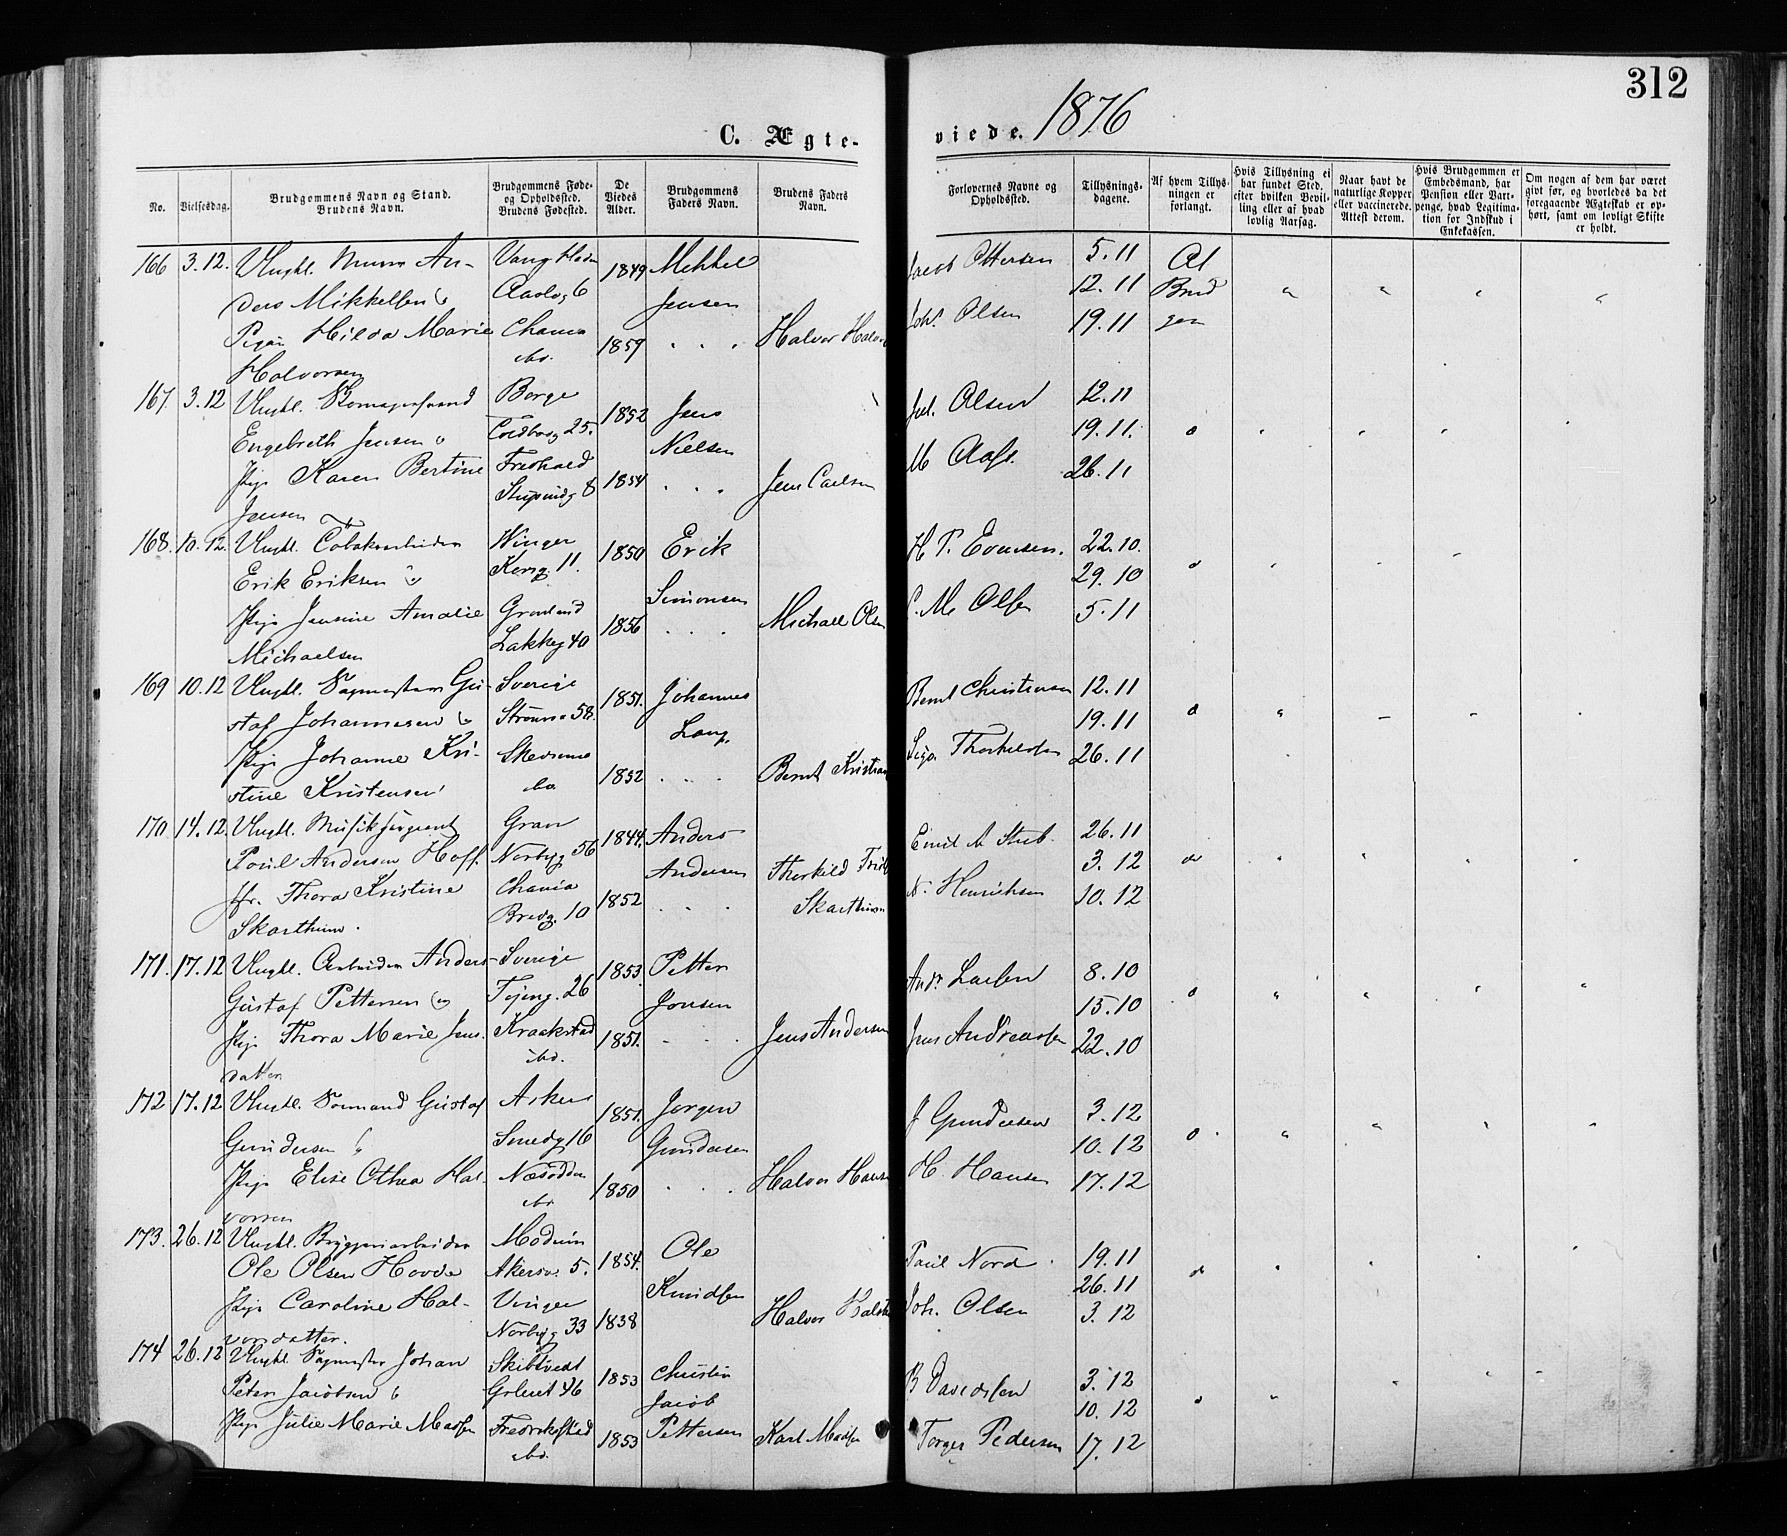 312
C. Ægte-
viede. 1876
No.
Vielsesdag.
Brudgommens Navn og Stand.
Brudens Navn.
Brudgommens Føde-
og Opholdssted.
Brudens Fødested.
De
Viedes
Alder.
Brudgommens
Faders Navn.
Brudens Faders
Navn.
Forlovernes Navne og
Opholdssted.
Tillysnings-
dagene.
Af hvem Tillys-
ningen er
forlangt.
Hvis Tillysning ei
har fundet Sted,
efter hvilken Bevil-
ling eller af hvad
lovlig Aarsag.
Naar havt de
naturlige Kopper
eller vaccinerede.
Attest derom.
Hvis Brudgommen er
Embedsmand, har
Pension eller Vart-
penge, hvad Legitima-
tion for Indskud i
Enkekassen.
Om nogen af dem har været
givt før, og hvorledes da det
foregaaende Ægteskab er op-
hørt, samt om lovligt Skifte
er holdt.
166 3.12. Ungkl. Murer An- 1849 Mikkel Jacob Ottersen 5.11 Af
ders Mikkelsen Jensen 12.11 Brud
Pigen Hilda Marie Chania 1859 Halvor Joh. Olsen 19.11 gom
Halvorsen ibd.
167. 3.12 Ungkl. Borge 1852 Jens Jul. Olsen 12.11
Engebreth Jensen 25. Nielsen 19.11. do
Pige Karen Bertine Fredhald 1854 Jens Carlsen M 26.11
Jensen 8
168. 10.12. Ungkl. Tobaksarbeider Winger 1850 Erik H P. Evensen. 22.10.
Erik Eriksen 11. Simonsen 29.10 do
Pige Jensine Amalie Grønland 1856 Michael Olsen M Olsen 5.11
Michaelsen Lakkeg 40
169 10.12 Ungkl. Sagmester Gu- Sverige 1851. Johannes Bernt Christiansen 12.11
staf Johannesen 58. Lang. 19.11 do
Pige Johanne Kri- 1852 Bernt Kristian Thorkelsen 26.11
stine Kristensen ibd.
170 14.12. Ungkl. Musiksergeant Gran 1844. Anders Emil A Stub. 26.11
Poul Andersen Hoff. Norbyg 56 Andersen 3.12 do
fr. Thora Kristine Chania 1852 Thorkild N. Henriksen 10.12
Skarthum. Bredg. 10 Skarthum
171. 17.12 Ungkl. Arbeider Anders Sverige 1853. Petter Andr Larsen 8.10
Gustaf Pettersen Tøieng. 26 Jonsen 15.10 do
Pige Thora Marie Jens- Kraakstad 1851. Jens Andersen Jens Andreassen 22.10
datter ibd.
172 17.12 Ungkl. Sømand Gustaf Asker 1851. Jørgen J Gundersen 3.12
Gundersen Smedg 16 Gundersen 10.12 do
Pige Elise Othea Hal- Næsodden 1850 Halvor Hansen H. Hansen 17.12
vorsen ibd.
173. 26.12 Ungkl. Bryggeriarbeider Modum 1854. Ole Paul Nord. 19.11
Ole Olsen Hovde Akersv. 5. Knudsen 26.11 do
Pige Caroline Hal- Vinger 1838 Halvor Joh. Olsen 3.12
vorsdatter. Norbyg 33
174 26.12 Ungkl. Sagmester Johan Skibtvedt 1853 Christin B Davidsen 3.12
Peter Jacobsen 46 Jacob 10.12 do
Pige Julie Marie Madsen Fredrikstad 1853 Pettersen Karl Madsen Torger Pedersen 17.12
ibd.